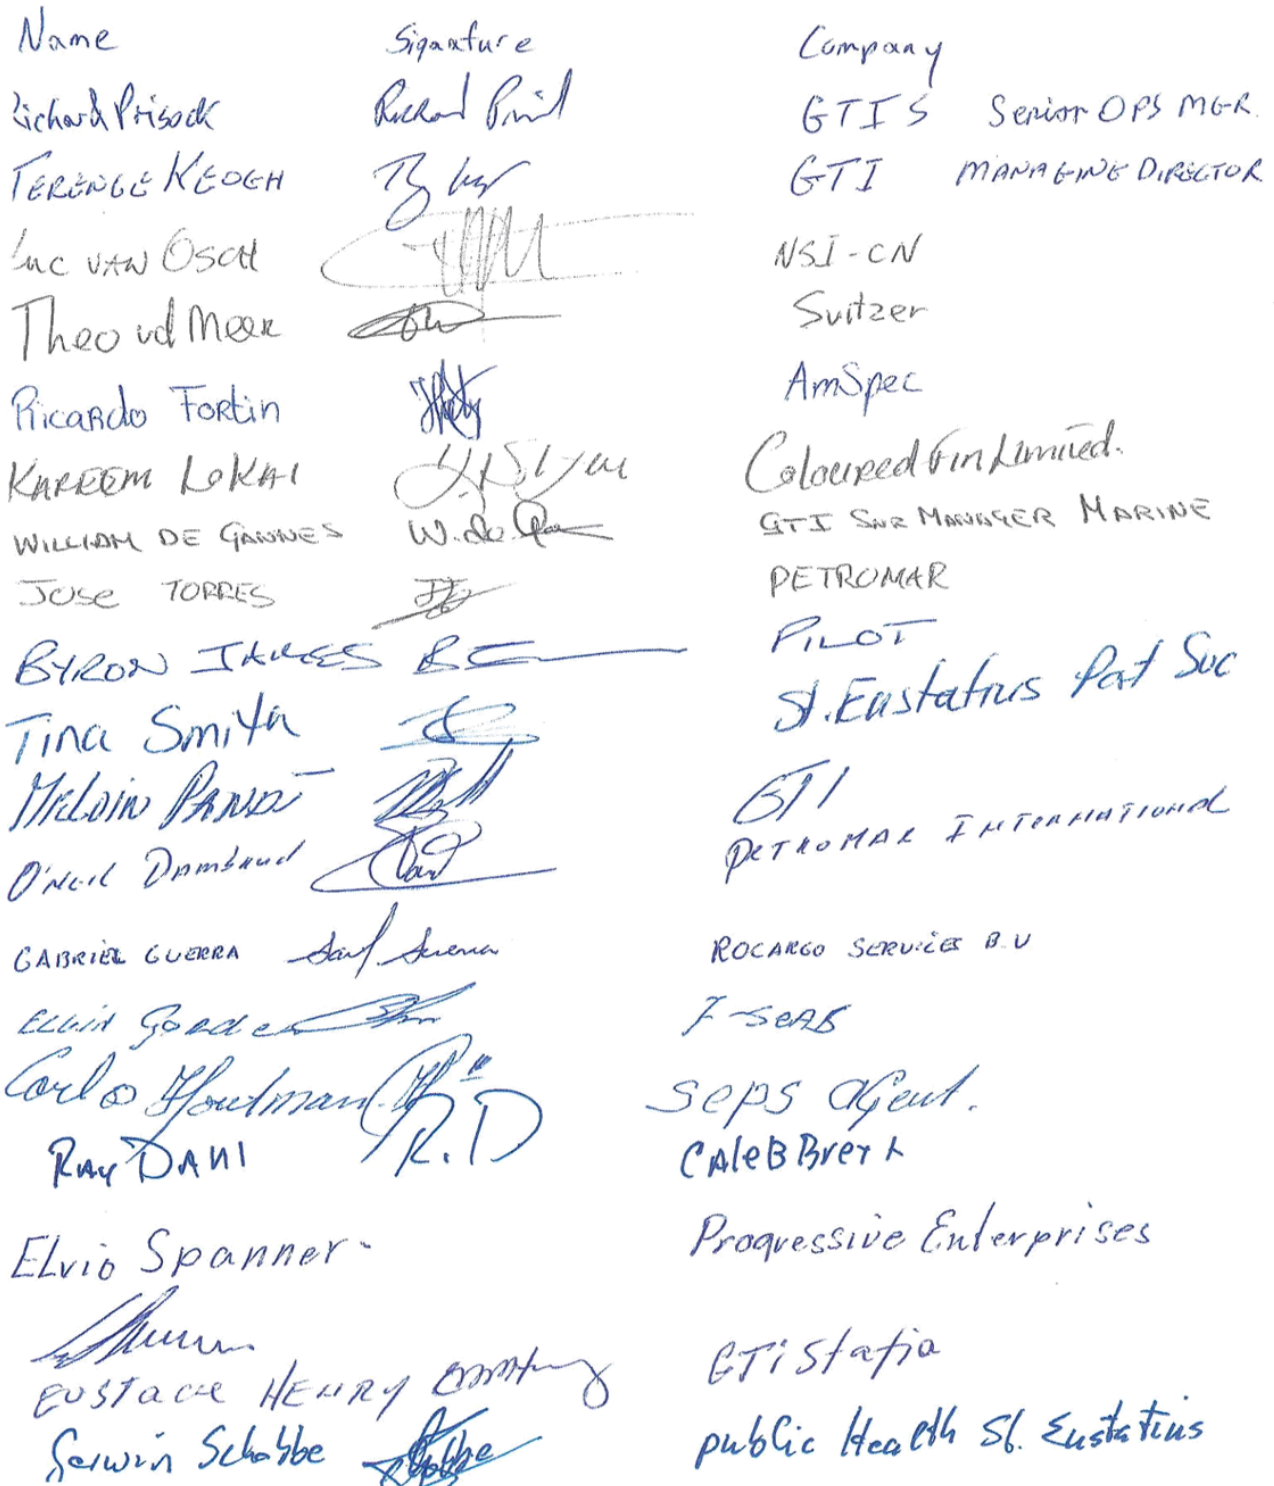 Name Signature Company
Richard Prisock GTIS Senior OPS MGR.
TERENCE KEOGH GTI MANAGING DIRECTOR
Luc VAN OSCH NSI-CN
Theo vd Meer Svitzer
Ricardo Fortin AmSpec
KAREEM LOKAI Coloured Fin Limited.
WILLIAM DE GANNES W. de GTI SNR MANAGER MARINE
JOSE TORRES PETROMAR
BYRON JAMES PILOT
Tina Smith St. Eustatius Port Svc
MELVIN PANDT GTI
O'Neil PETROMAR INTERNATIONAL
GABRIEL GUERRA ROCARGO SERVICES B.V
SEPS agent.
Carlos Houtman
RAY DAHI R.D CALEB Brett
Elvio Spanner Progressive Enterprises
EUSTACE HENRY GTI Statia
Gerwin Schobbe public Health St. Eustatius